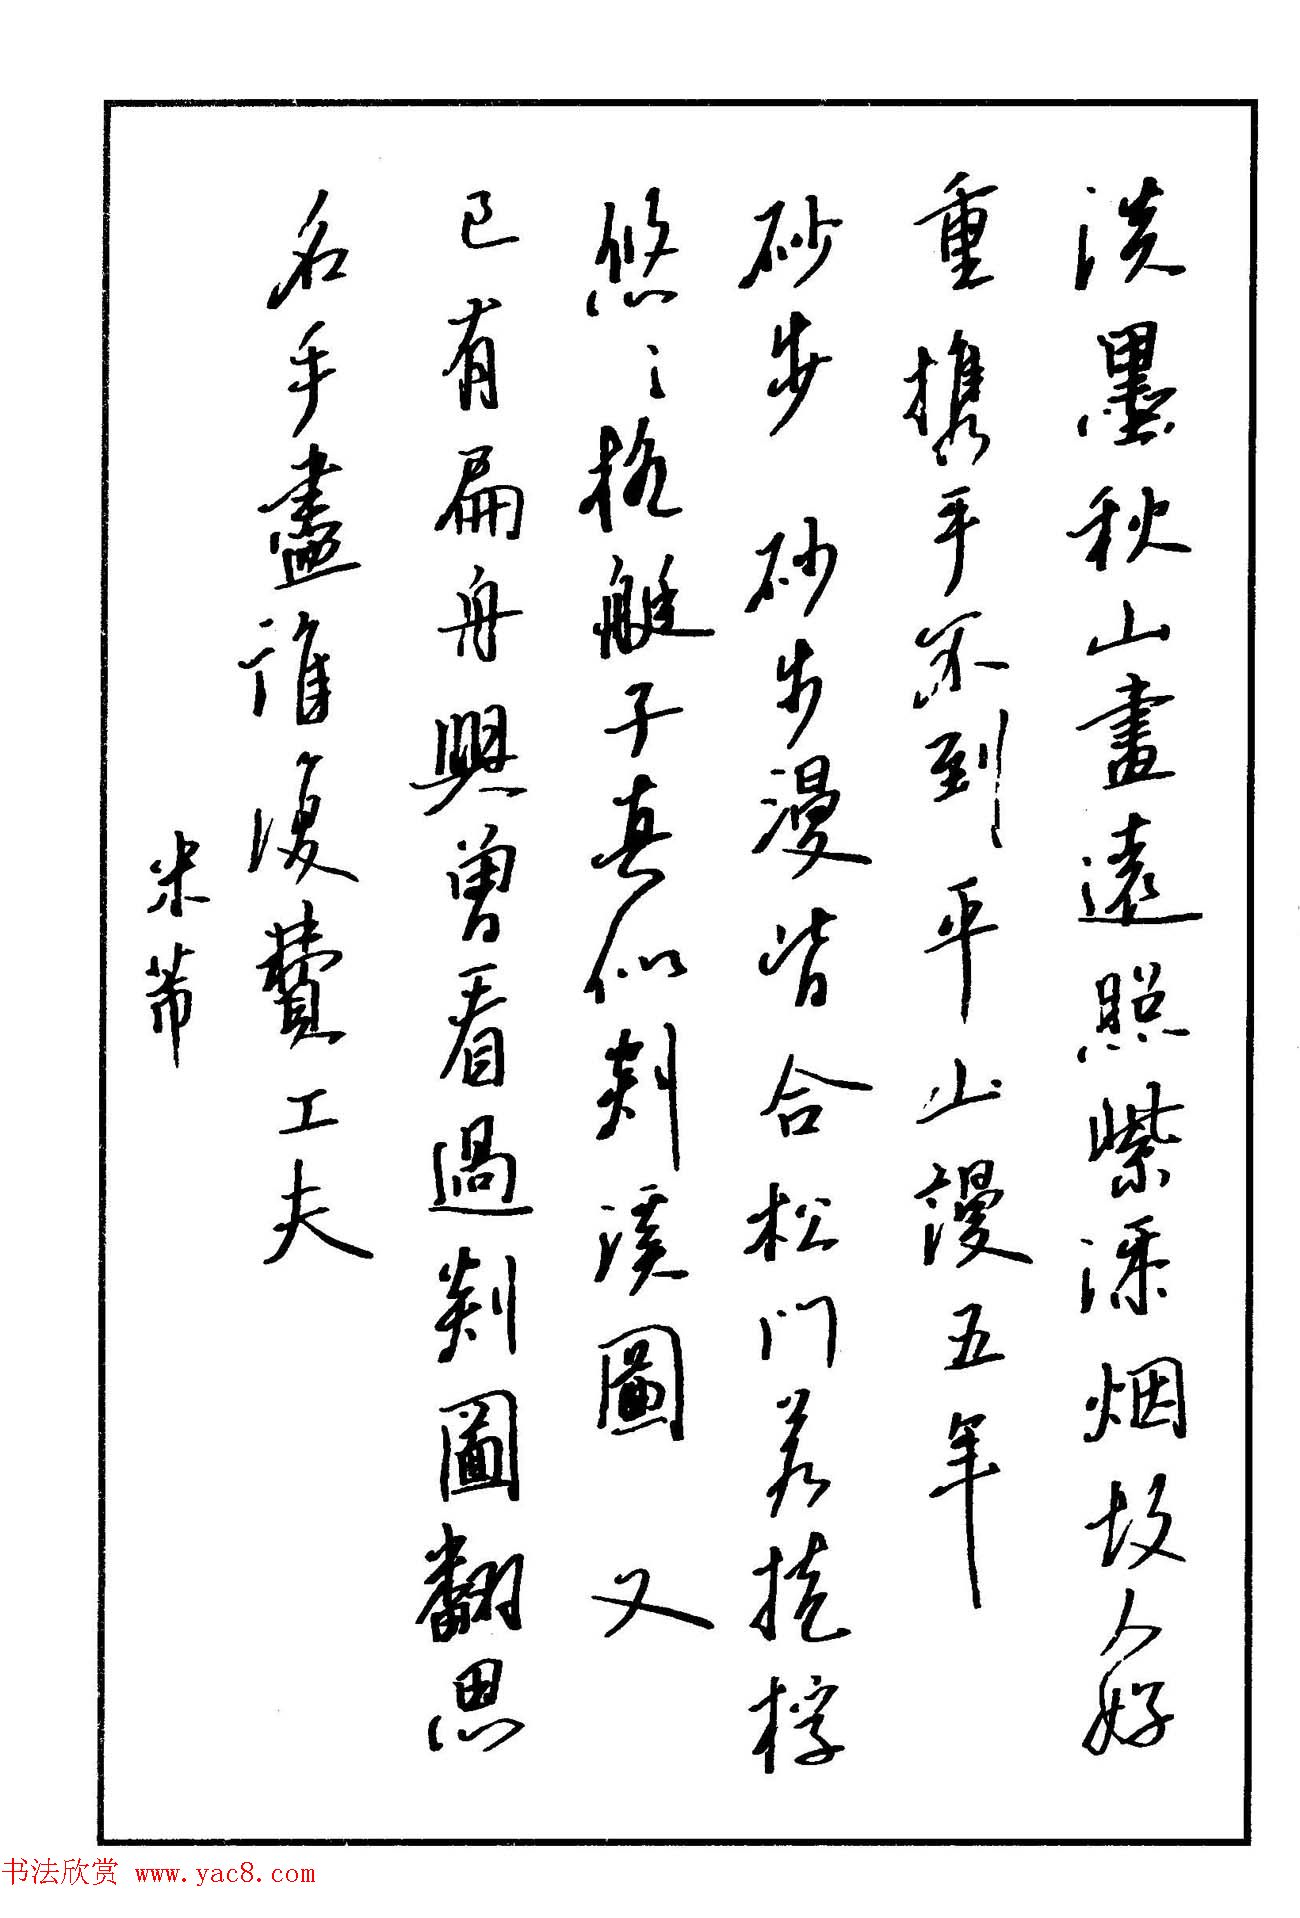 淡墨秋山畫遠照紫添烟故人好
重携手不到平山謾五年
砂步 砂步漫皆合松門若掩桴
悠々搖艇子真似剡溪圖 又
已有扁舟興曾看過剡圖翻思
名手盡誰復費工夫
米芾
书法欣赏 www.yac8.com